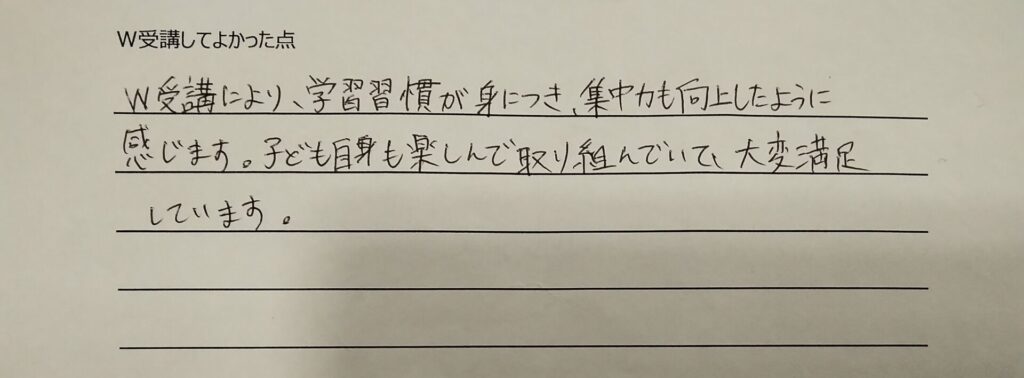 W受講してよかった点
W受講により、学習習慣が身につき、集中力も向上したように
感じます。子ども自身も楽しんで取り組んでいて、大変満足
しています。